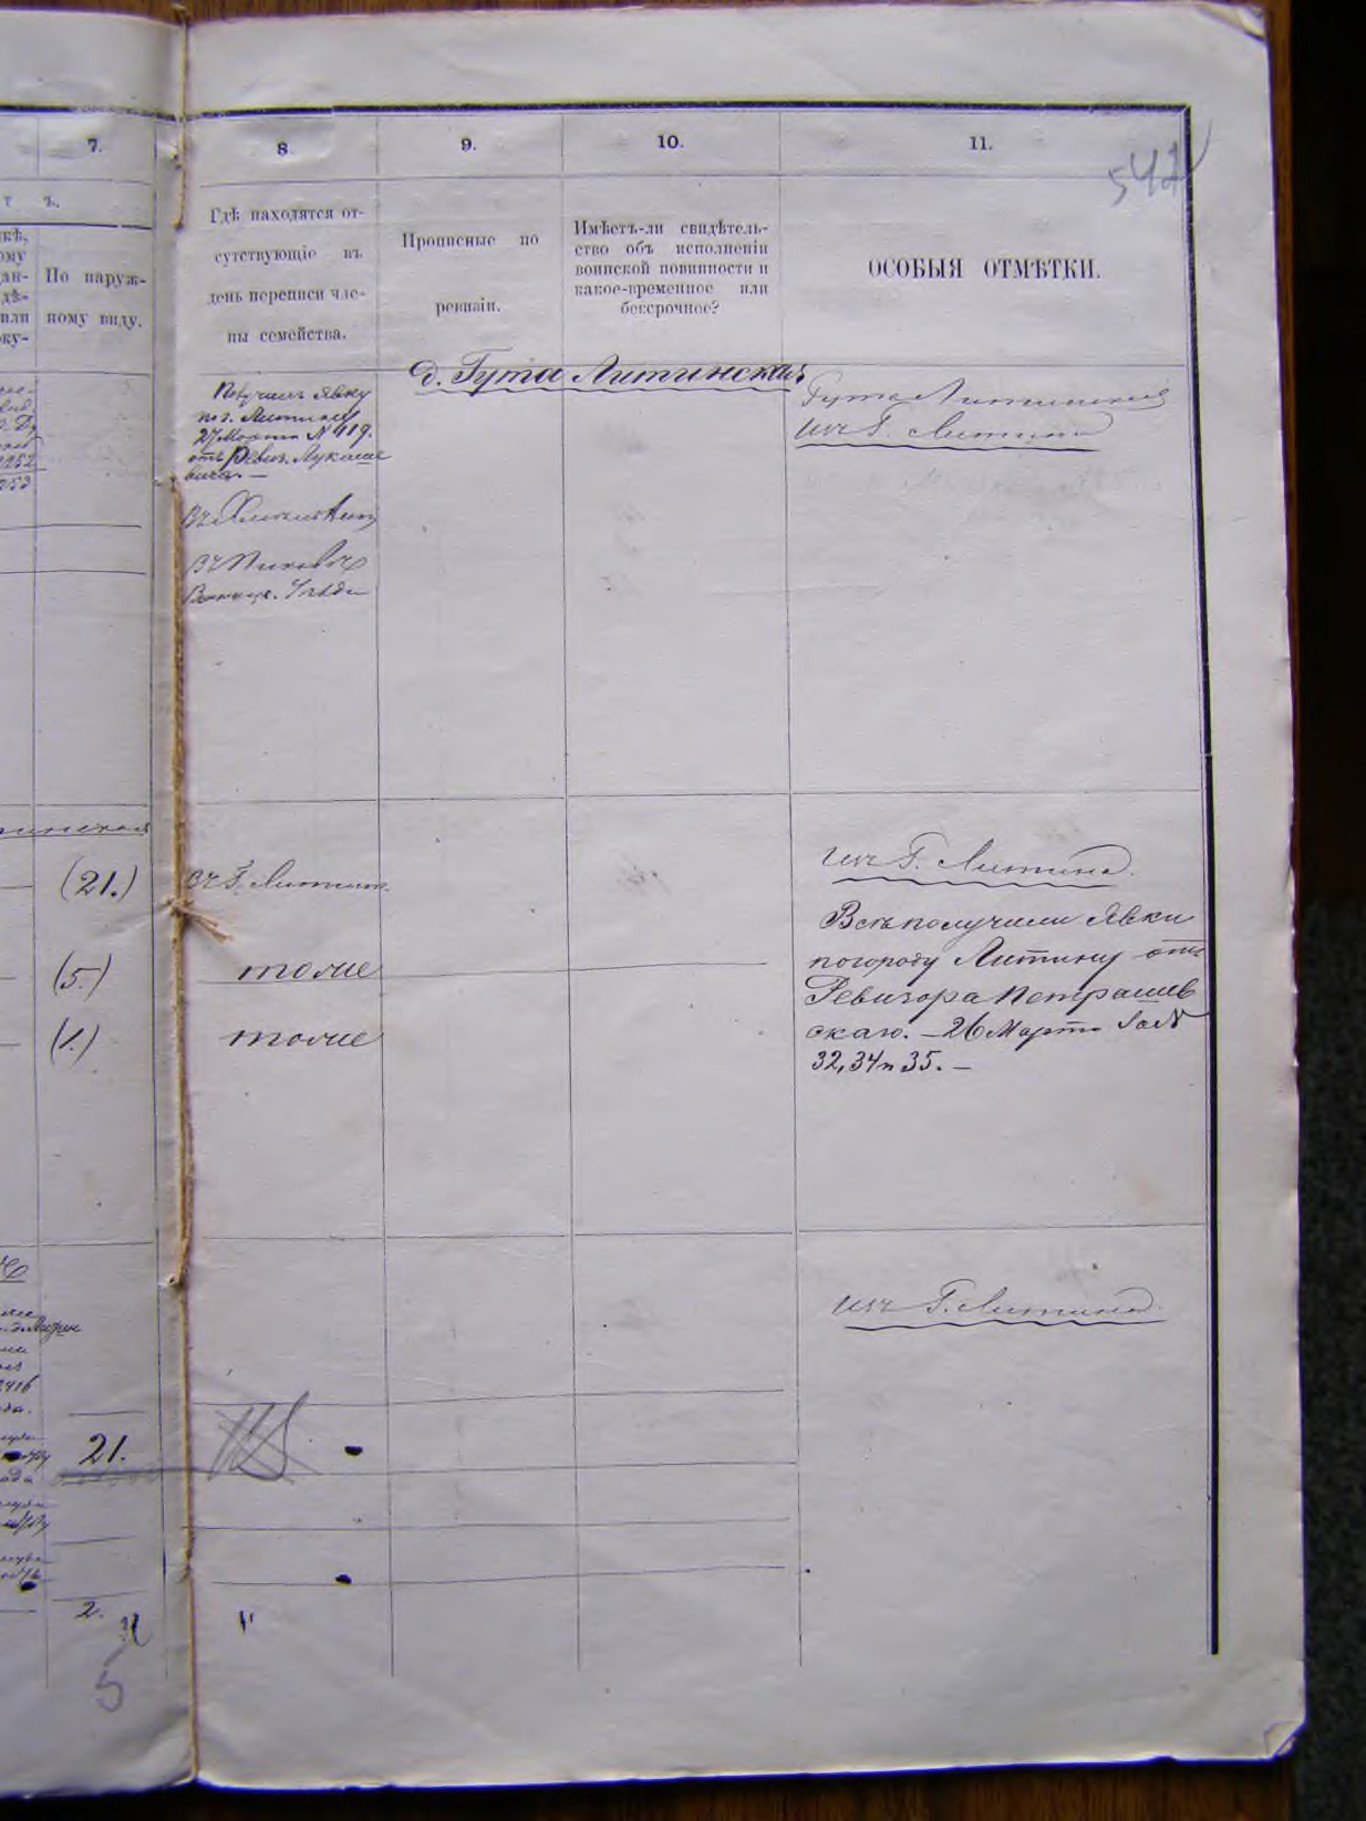 7.
8
9.
10.
11.
542
т ъ.
По наруж-
ному виду.
Гдѣ находятся от-
сутствующіе въ
день переписи чле-
ны семейства.
Прописные по
ревизіи.
Имѣетъ-ли свидѣтель-
ство объ исполненіи
воинской повинности и
какое-временное или
бессрочное?
ОСОБЫЯ ОТМѢТКИ.
д. Гута Литинская
Получилъ явку
по г. Литину
27 Марта № 119.
отъ Ревиз. Лукаше
вича. —
Гута Литинская
изъ Г. Литина
Въ Пиковѣ
Винниц. Уѣзда
(21.)
Въ Г. Литинѣ
(5.)
тоже
(1.)
тоже
изъ Г. Литина.
Всѣ получили явки
по городу Литину отъ
Ревизора Петрашев
скаго. — 26 Марта за №
32, 34 и 35. —
изъ Г. Литина.
21.
2.
5